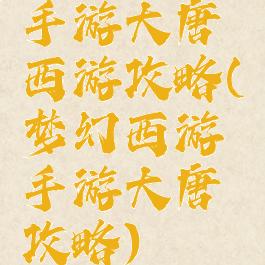 手游大唐
西游攻略(
梦幻西游
手游大唐
攻略)